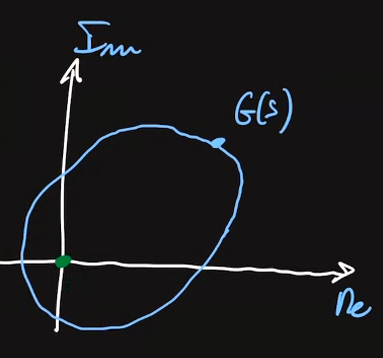 Im
G(s)
Re